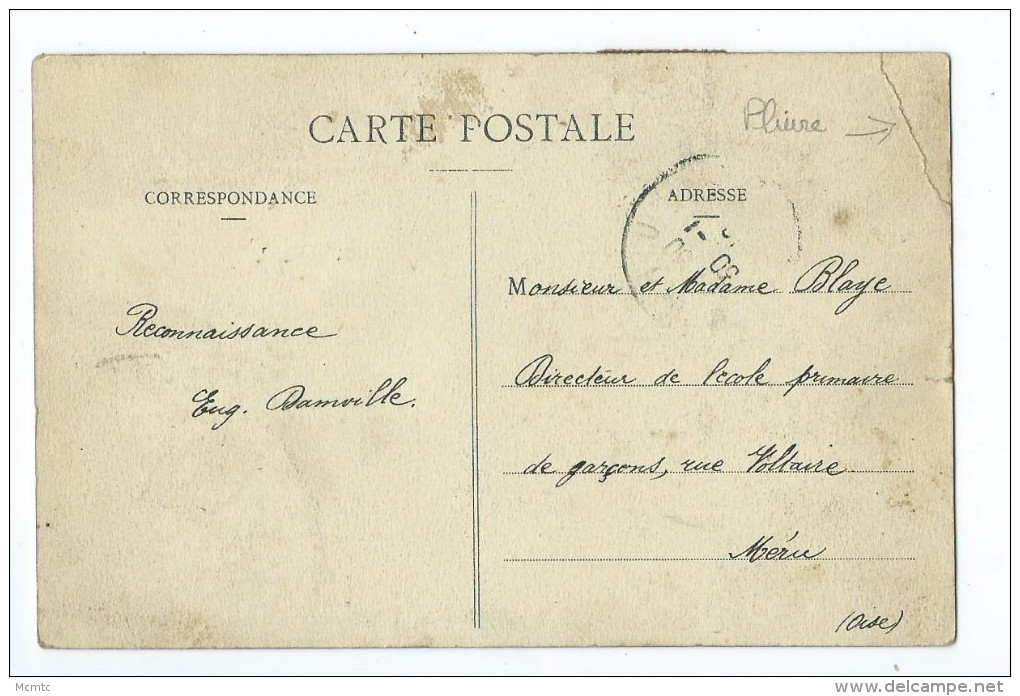 CARTE POSTALE
Pliure
CORRESPONDANCE
ADRESSE
Reconnaissance
Eug. Damville.
Monsieur et Madame Blaye
Directeur de l'ecole primaire
de garçons, rue Voltaire
Méru
(Oise)
Mcmtc
www.delcampe.net